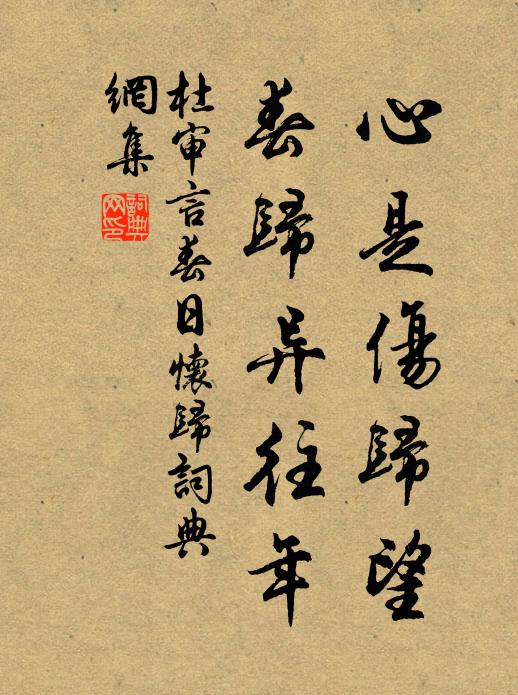 心是傷歸望
春歸异往年
杜审言春日懷歸詞典
網集
詞典
网印